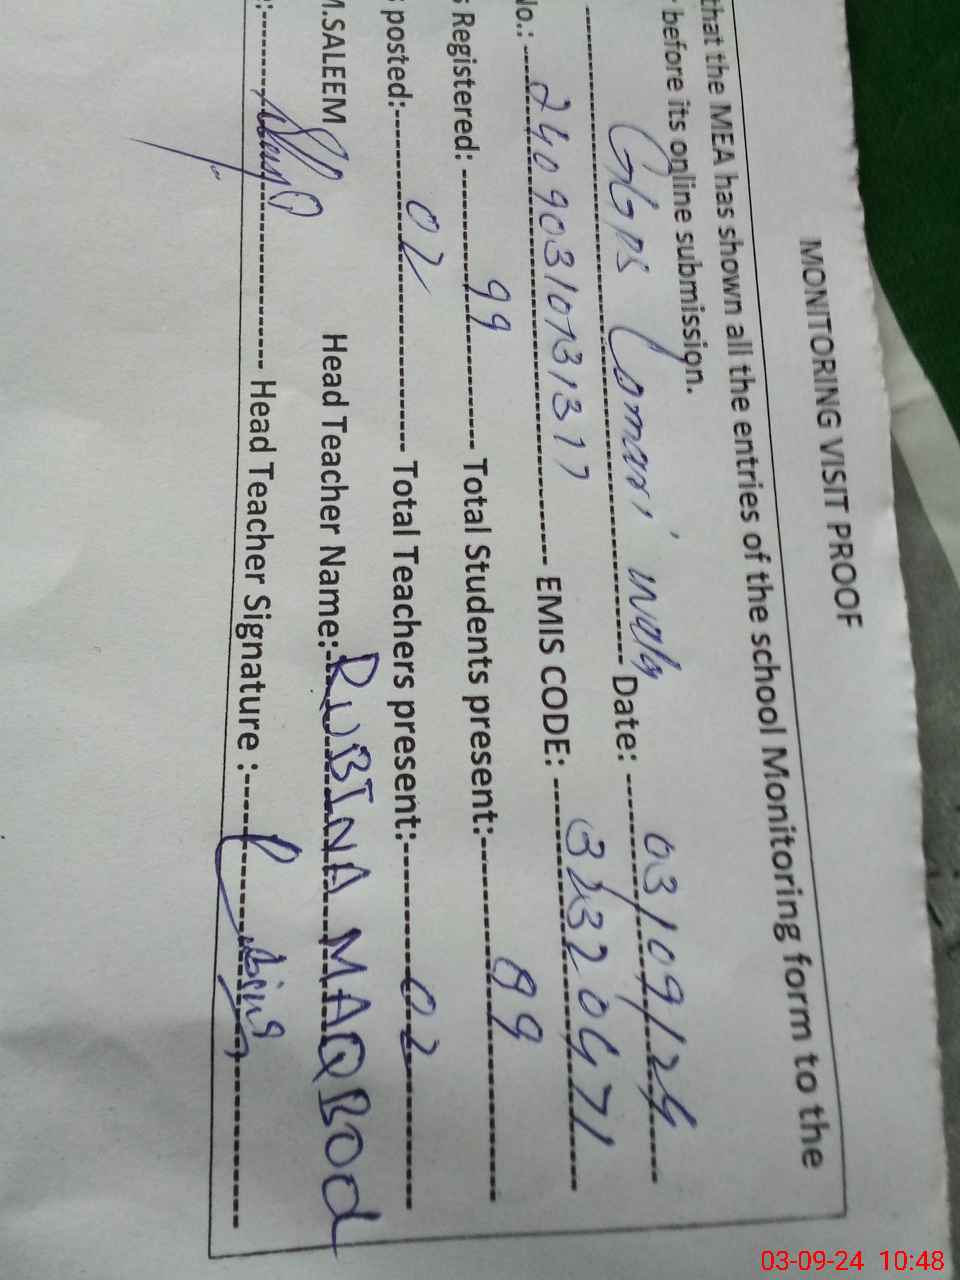 MONITORING VISIT PROOF
that the MEA has shown all the entries of the school Monitoring form to the
before its online submission.
GGPS Date: 03/09/24
No.: 2409031013131 EMIS CODE: 33320471
s Registered: 99 Total Students present: 89
s posted: 02 Total Teachers present: 02
M.SALEEM Head Teacher Name: RUBINA MAQBOOd
Head Teacher Signature :
03-09-24 10:48